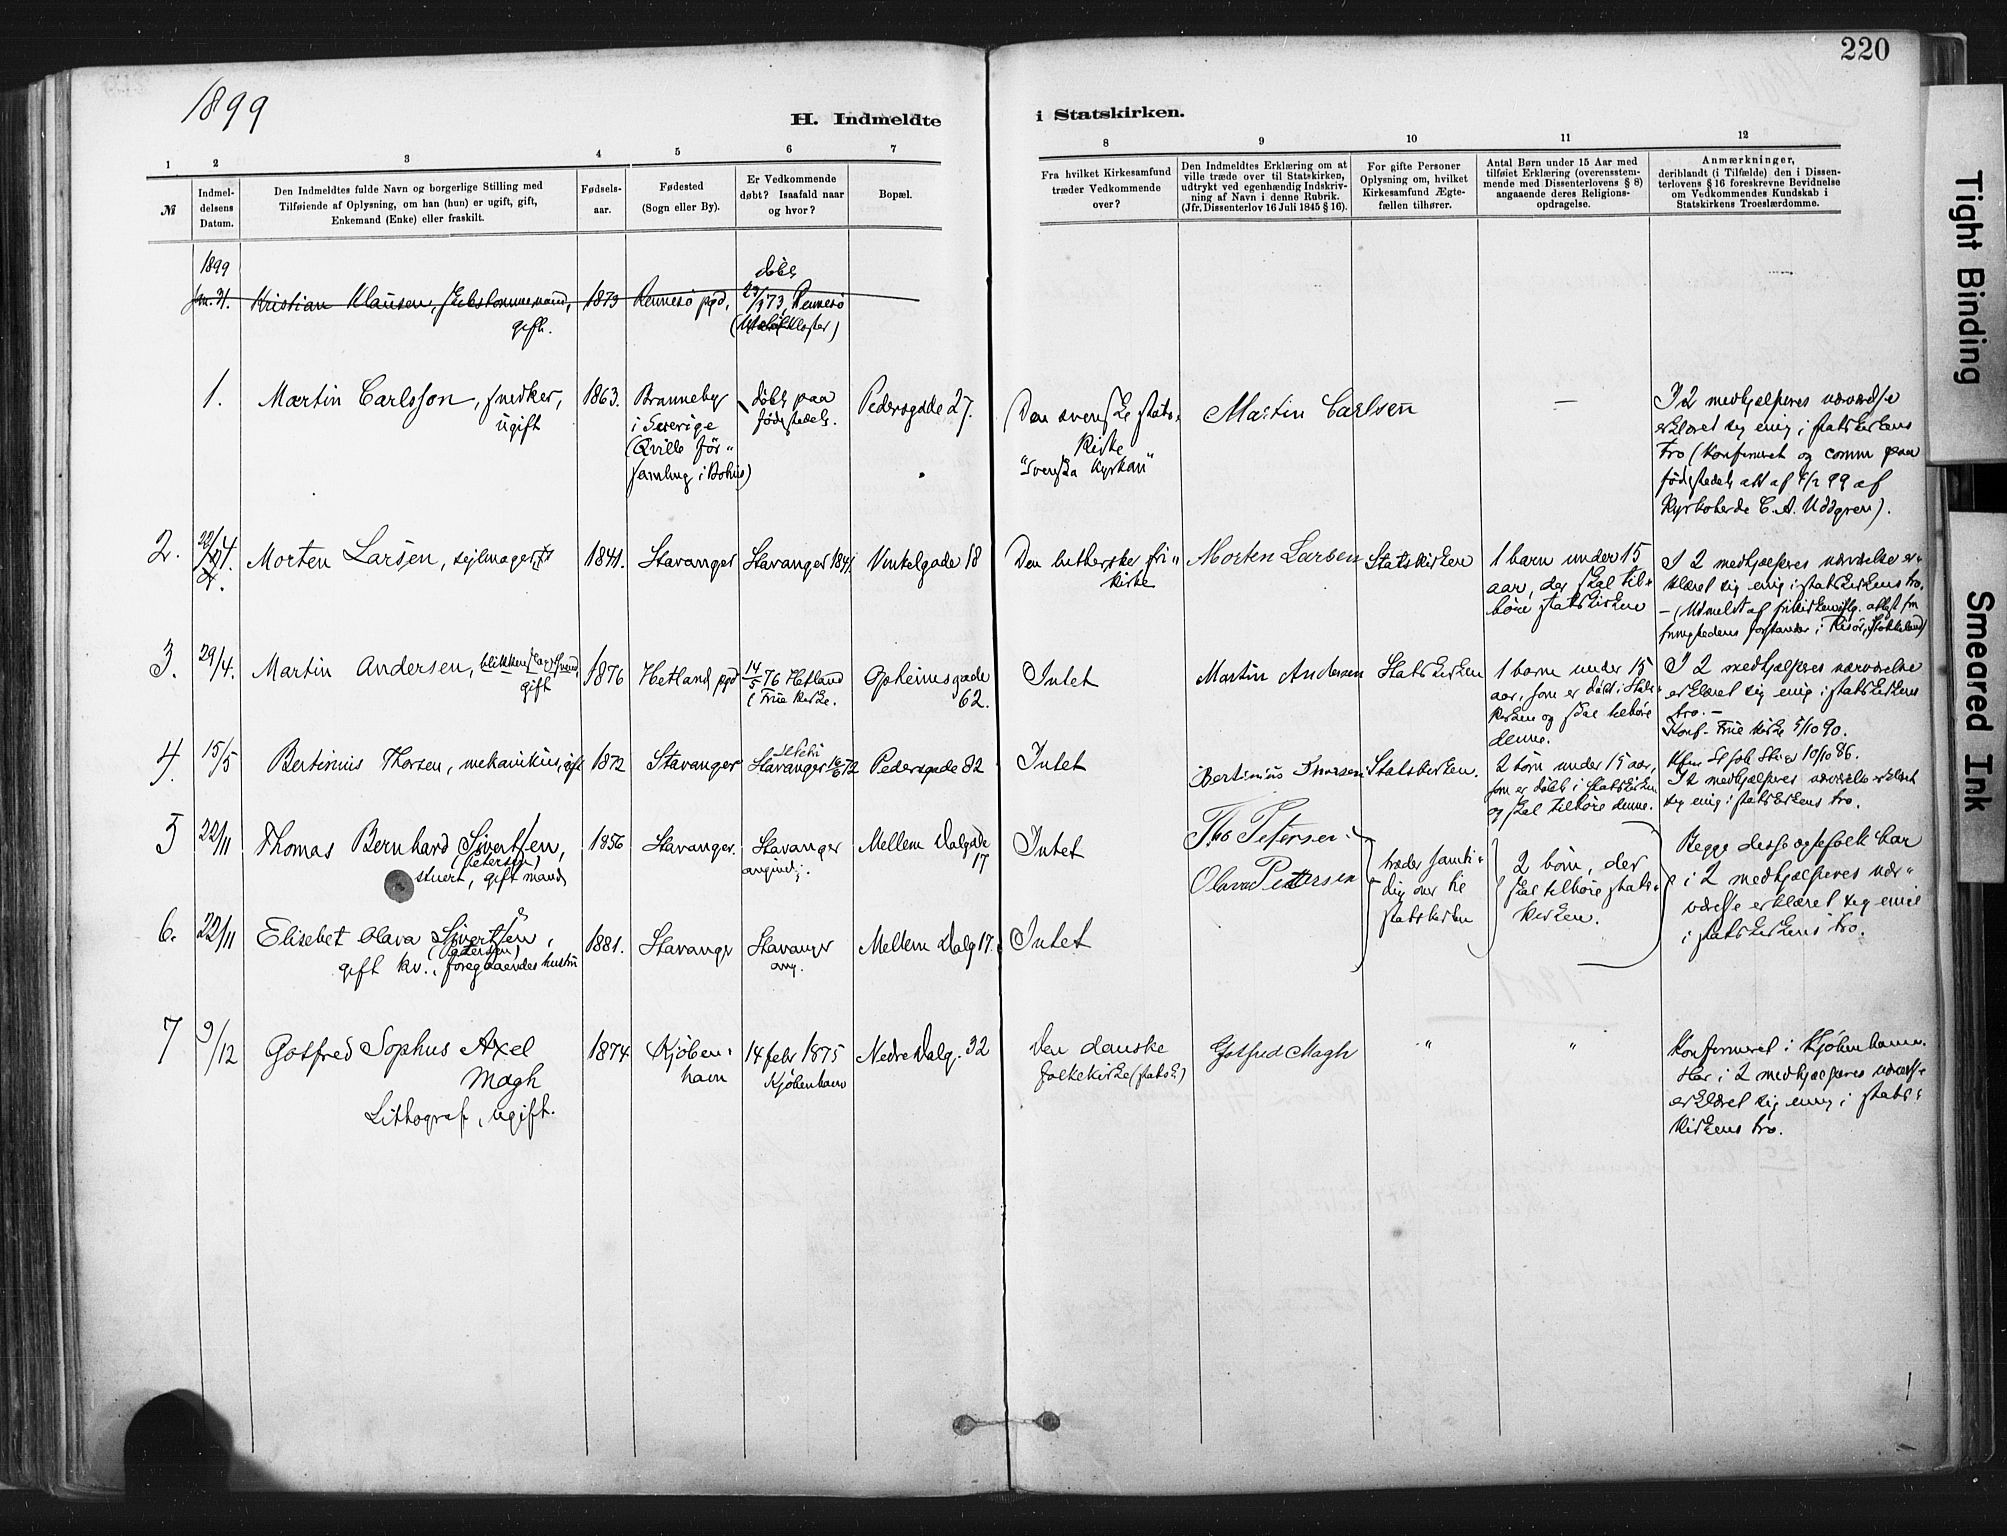 220
1899
H. Indmeldte i Statskirken.
1 2 3 4 5 6 7 8 9 10 11 12
№
Indmel-
delsens
Datum.
Den Indmeldtes fulde Navn og borgerlige Stilling med
Tilføiende af Oplysning, om han (hun) er ugift, gift,
Enkemand (Enke) eller fraskilt.
Fødsels-
aar.
Fødested
(Sogn eller By).
Er Vedkommende
døbt? Isaafald naar
og hvor?
Bopæl.
Fra hvilket Kirkesamfund
træder Vedkommende
over?
Den Indmeldtes Erklæring om at
ville træde over til Statskirken,
udtrykt ved egenhændig Indskriv-
ning af Navn i denne Rubrik.
(Jfr. Dissenterlov 16 Juli 1845 § 16).
For gifte Personer
Oplysning om, hvilket
Kirkesamfund Ægte-
fællen tilhører.
Antal Børn under 15 Aar med
tilføiet Erklæring (overensstem-
mende med Dissenterlovens § 8)
angaaende deres Religions-
opdragelse.
Anmærkninger,
deriblandt (i Tilfælde) den i Dissen-
terlovens § 16 foreskrevne Bevidnelse
om Vedkommendes Kundskab i
Statskirkens Troeslærdomme.
1899
Kristian Klausen,
gift.
1873
Rennesø pgd,
døbt
Rennesø
Kloster)
1.
Martin Carlsson, snedker,
ugift
1863.
Branneby
i Sverige
(Qville för=
samling i Bohus)
døbt paa
fødestedet.
Pedersgade 27.
Den svenske stats=
kirke
"Svenska kyrkan"
Martin Carlsen
—
I 2 medhjælperes nærværelse
erklæret sig enig i statskirkens
tro (Konfirmeret og comm paa
fødestedet att af
99 af
Kyrkoherde C. A. Uddgren).
2.
Morten Larsen, sejlmager,
1841.
Stavanger
Stavanger 1841
Vinkelgade 18
Den lutherske fri=
kirke
Morten Larsen
Statskirken
1 barn under 15
aar, der skal til=
høre statskirken
I 2 medhjælperes nærværelse er=
klæret sig enig i statskirkens tro.
3.
29/4.
Martin Andersen,
gift
1876
Hetland pgd
14/5 76 Hetland
i Frue kirke.
Opheimsgade
62.
Intet
Martin Andersen
Statskirken
1 barn under 15
aar, som er døbt i Stats=
kirken og skal tilhøre
denne.
I 2 medhjælperes nærværelse
erklæret sig enig i statskirkens
tro. –
Konf. Frue kirke 5/10 90.
4.
15/5
Bertinius Thorsen, mekanikus, gift
1872
Stavanger
St Petri
Stavanger
72
Pedersgade 82
Intet
Bertinius Thorsen
Statskirken.
2 børn under 15 aar,
som er døbt i Statskirken
og skal tilhøre denne.
10/10 86.
I 2 medhjælperes nærværelse erklæret
sig enig i statskirkens tro.
5
22/11
Thomas Bernhard Sivertsen,
(Petersen)
stuert, gift mand
1856
Stavanger.
Stavanger
angivel.
Mellem Dalgade
17
Intet
Tho Petersen.
Olava Petersen
træder samti=
dig over til
statskirken
2 børn, der
skal tilhøre stats=
kirken.
Begge disse ægtefolk har
i 2 medhjælperes nær=
værelse erklæret sig enig
i statskirkens tro.
6.
22/11
Elisebet Olava Sivertsen,
(Petersen)
gift kv., foregaaendes hustru
1881.
Stavanger
Stavanger
ang.
Mellem Dalg 17.
Intet
7
9/12
Gotfred Sophus Axel
Magh
Lithograf, ugift.
1874
Kjøben=
havn
14 febr 1875
Kjøbenhavn
Nedre Dalg. 32
Den danske
folkekirke (statsk.)
Gotfred Magh
"
"
Konfirmeret i Kjøbenhavn.
Har i 2 medhjælperes nærværelse
erklæret sig enig i stats=
kirkens tro.
Tight Binding
Smeared Ink